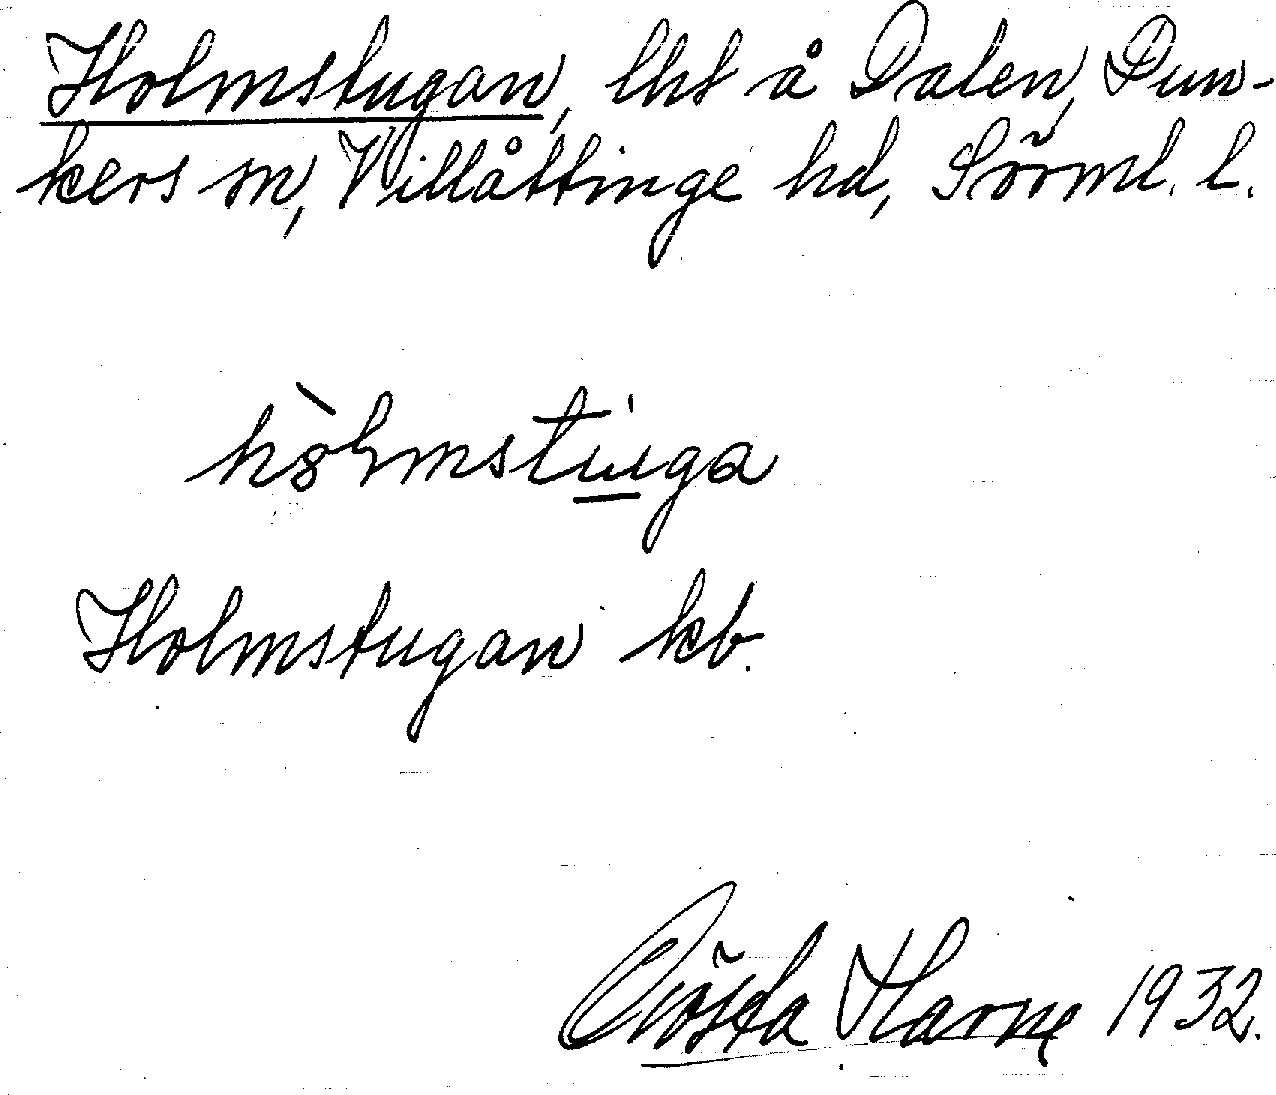 Holmstugan, lht å Dalen, Dun-
kers sn, Villåttinge hd, Sörml. l.
Holmstugan kb.
Gösta Harne 1932.